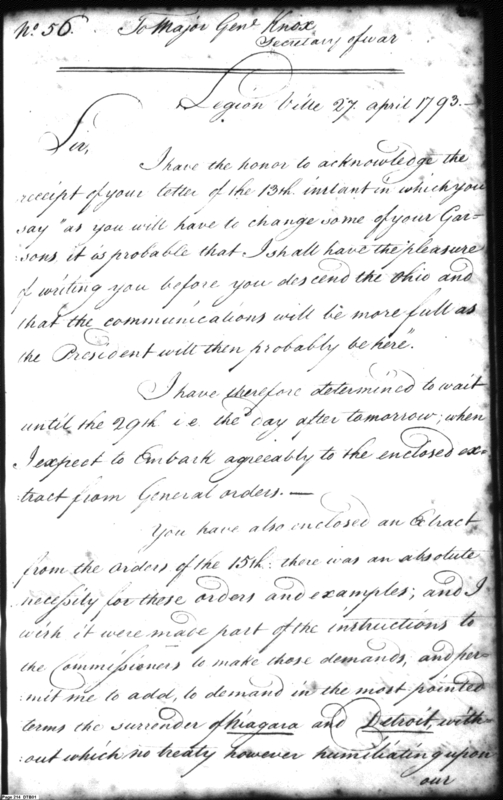 No 56. To Major Genl Knox
Secretary of war
Legion ville 27 april 1793.—
Sir,
I have the honor to acknowledge the
receipt of your letter of the 13th instant in which you
say "as you will have to change some of your Gar=
=sons, it is probable that I shall have the pleasure
of writing you before you descend the Ohio and
that the communications will be more full as
the President will then probably be here".
I have therefore determined to wait
until the 29th i.e. the day after tomorrow; when
I expect to Embark agreeably to the enclosed ex=
tract from General orders.—
You have also enclosed an Extract
from the orders of the 15th: there was an absolute
necessity for these orders and examples; and I
wish it were made part of the instructions to
the Commissioners to make those demands, and per=
mit me to add, to demand in the most pointed
terms the surrender of Niagara and Detroit with=
out which no treaty however humiliating upon
our
Page 214